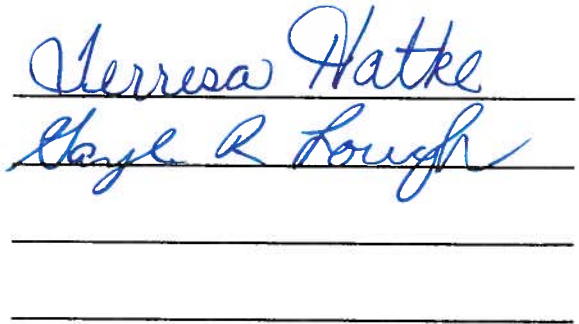 Terresa Hatke
Gayle R Lough